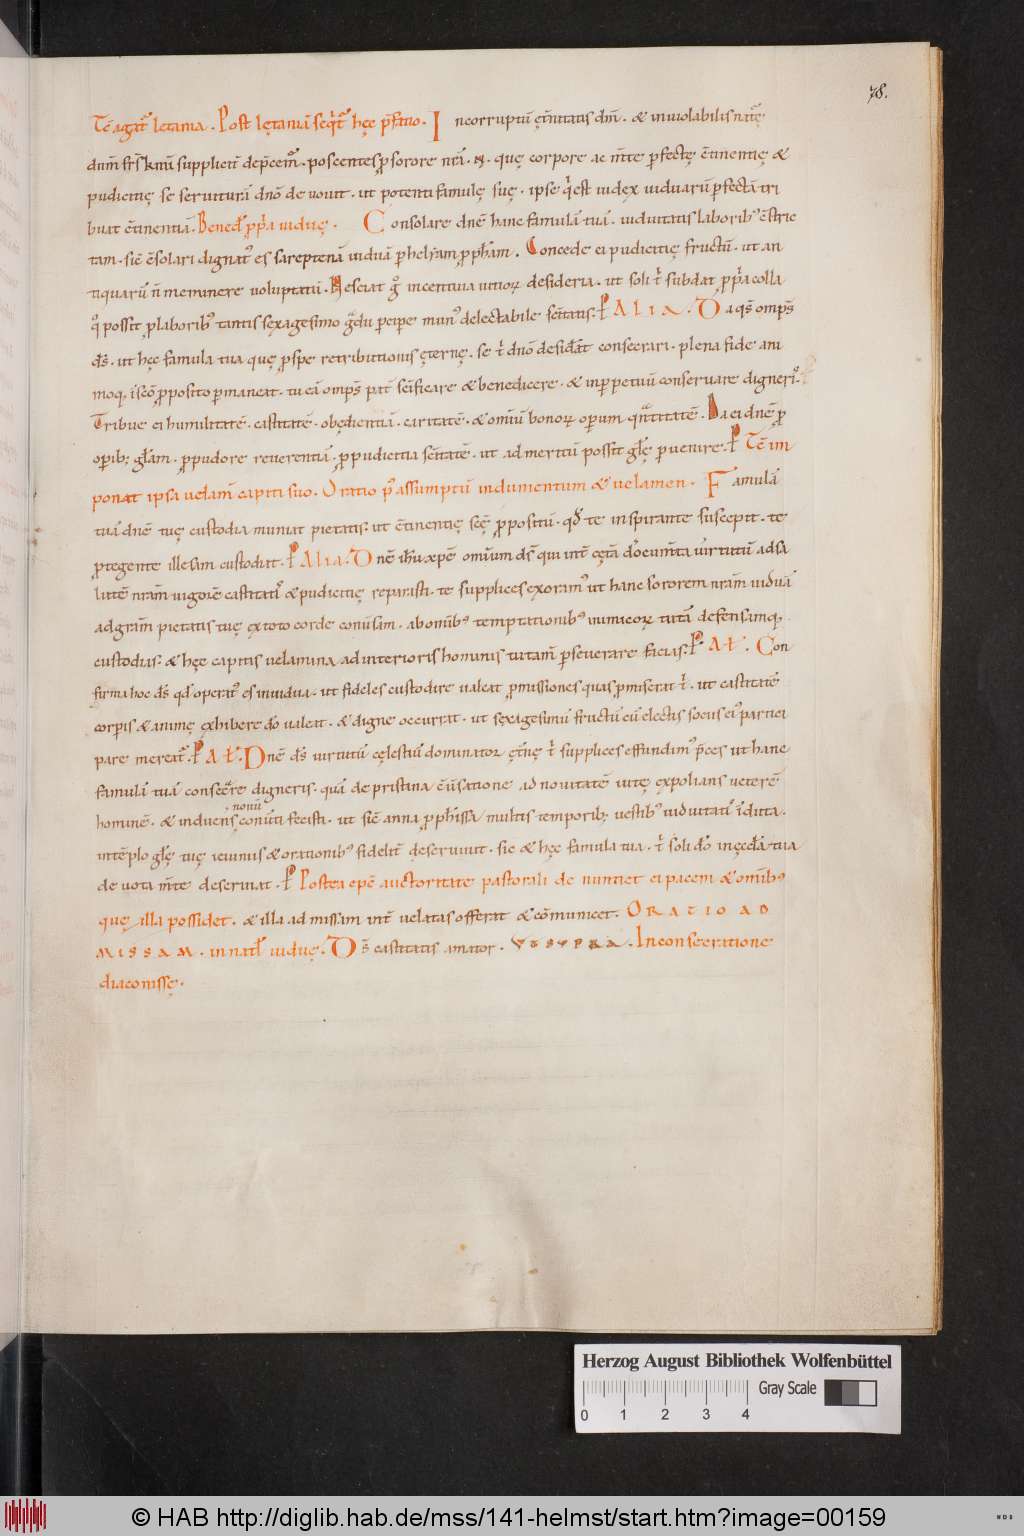 78.
Tē agat᷑ letania . Post lętaniā seq̄t᷑ hęc p̄fatio . Incorruptū ęt̄nitatis dm̄ . & inuiolabilis nat᷑ę
dn̄m fr̄s km̄i suppliciť dep̄cem᷑ . poscentes ꝓ sorore nr̄a . N . quę corpore ac m̄te ꝑfectę c̄tinentię &
pudicitię se seruiturā dn̄o deuouit . ut potenti famulę suę . ipse q̄ est iudex uiduarū ꝑfectā tri
buat c̄tinentiā . Bened̄ ꝓpa uiduę . Consolare dn̄e hanc famulā tuā . uiduitatis laborib᷒ c̄stric
tam . sic c̄solari dignat᷒ es sareptenā uiduā ꝑ helyam ꝓph̄am . Concede ei pudicitię fructū . ut an
tiquarū n̄ meminere uoluptatū . Nesciat g̊ incentiua uitioꝝ desideria . ut soli t̄ subdat ꝓpa colla
q̊ possit ꝓ laborib᷒ tantis sexagesimo g̊du ꝑcipe mun᷒ delectabile sc̄itatis . ALIA . Da qs̄ omps̄
ds̄ . ut hęc famula tua quę ꝓ spe retributionis ęternę . se t̄ dn̄o desid̄at consecrari . plena fide ani
moq; ī sc̄o ꝓposito ꝑmaneat . tu eā omps̄ pat̄ sc̄ificare & benedicere . & inꝑpetuū conseruare digneri᷒ .
Tribue ei humilitatē . castitatē . obędientiā . caritatē . & omiū bonoꝝ oꝑum qn̄titatē . Da ei dnē ꝓ
oꝑib; gl̄am . ꝓ pudore reuerentiā . ꝓ pudicitia sc̄itatē . ut ad meritū possit gl̄ę ꝑuenire . Tc̄ im
ponat ipsa uelam̄ capiti suo . Oratio p᷒ assumptū indumentum & uelamen . Famulā
tuā dnē tuę custodia muniat pietatis . ut c̄tinentię sc̄ę ꝓpositū . qd̄ te inspirante suscepit . te
ꝓtegente illesam custodiat . Alia . Dn̄e ih̄u xp̄e omiūm ds̄ qui int̄ cęta docum̄ta uirtutū ad sa
lutē nram̄ uigorē castitati᷒ & pudicitię reparasti . te supplices exoram᷒ ut hanc sororem nram̄ uiduā
ad gram̄ pietatis tuę ex toto corde conūsam . ab omib᷒ temptationib᷒ inimicoꝝ tutā defensamq;
custodias . & hęc capitis uelamina ad interioris hominis tutam̄ ꝑseuerare facias . Ał . Con
firma hoc ds̄ qd̄ operat᷒ es in uidua . ut fideles custodire ualeat ꝓmissiones quas ꝓmiserat t̄ . ut castitatē
corpis & animę exhibere do ualeat . & digne occurrat . ut sexagesimū fructū cū electis sociis ei᷒ partici
pare mereat᷑ . Ał . Dn̄e ds̄ uirtutū cęlestiū dominator ęt̄nę t̄ supplices effundim᷒ p̄ces ut hanc
famulā tuā consecrare digneris . quā de pristina c̄uersatione ad nouitatē uitę expolians ueterē
nouū
hominē . & induens conuti fecisti . ut sic anna ꝓph̄issa multis temporib; uestib᷒ uiduitati᷒ īduta .
in tēplo gl̄ę tuę ieiuniis & orationib᷒ fideliť deseruiuit . sic & hęc famula tua . t̄ soli do in ęccl̄a tua
deuota m̄te deseruiat . Postea ep̄c auctoritate pastorali denuntiet ei pacem & omib᷒
quę illa possidet . & illa ad missam int̄ uelatas offerat & cōmunicet . ORATIO AD
MISSAM . in natl̄ uiduę . Ds̄ castitatis amator . VT SVPRA . In consecratione
diaconissę .
Herzog August Bibliothek Wolfenbüttel
Gray Scale
0 1 2 3 4
© HAB http://diglib.hab.de/mss/141-helmst/start.htm?image=00159